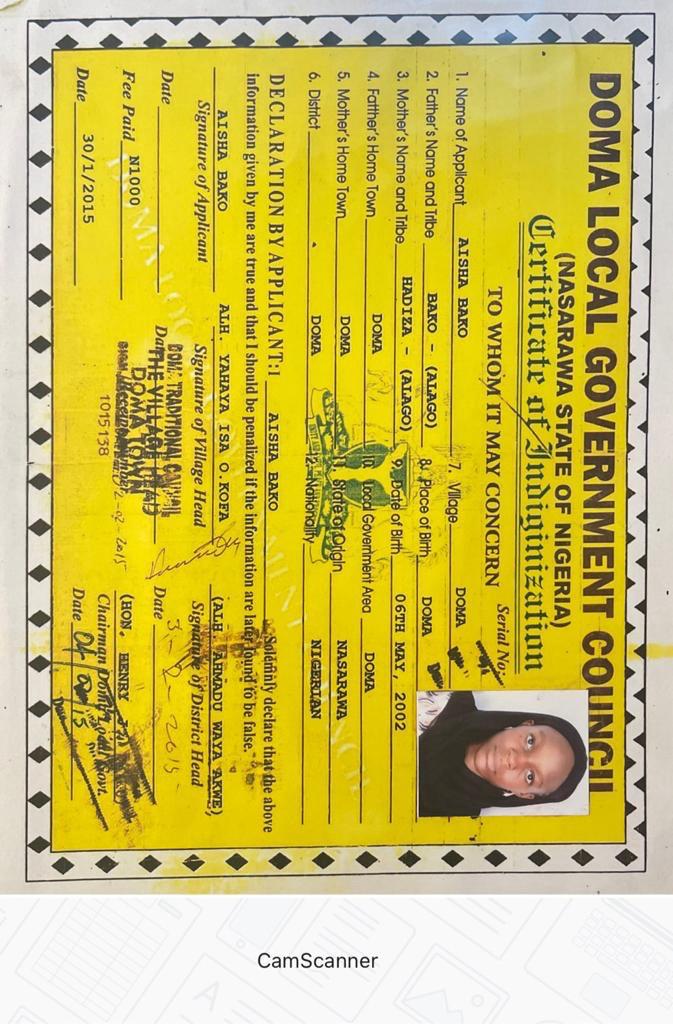 DOMA LOCAL GOVERNMENT COUNCIL
(NASARAWA STATE OF NIGERIA)
Certificate of Indiginization
Serial No:
TO WHOM IT MAY CONCERN
1. Name of Applicant AISHA BAKO 7. Village DOMA
2. Father's Name and Tribe BAKO - (ALAGO) 8. Place of Birth DOMA
3. Mother's Name and Tribe HADIZA - (ALAGO) 9. Date of Birth 06TH MAY, 2002
4. Fatther's Home Town DOMA 10. Local Government Area DOMA
5. Mother's Home Town DOMA 11. State of Origin NASARAWA
6. District DOMA 12. Nationality NIGERIAN
DECLARATION BY APPLICANT: I AISHA BAKO Solemnly declare that the above
information given by me are true and that I should be penalized if the information are later found to be false.
AISHA BAKO ALH. YAHAYA ISA O.KOFA (ALH. AHMADU WAYA AKWE)
Signature of Applicant Signature of Village Head Signature of District Head
Date Date Date
DOMA TRADITIONAL COUNCIL
THE VILLAGE HEAD
DOMA TOWN
Fee Paid N1000 (HON. HENRY
1015138 Chairman Doma Local Govt.
Date 30/1/2015 Date
CamScanner